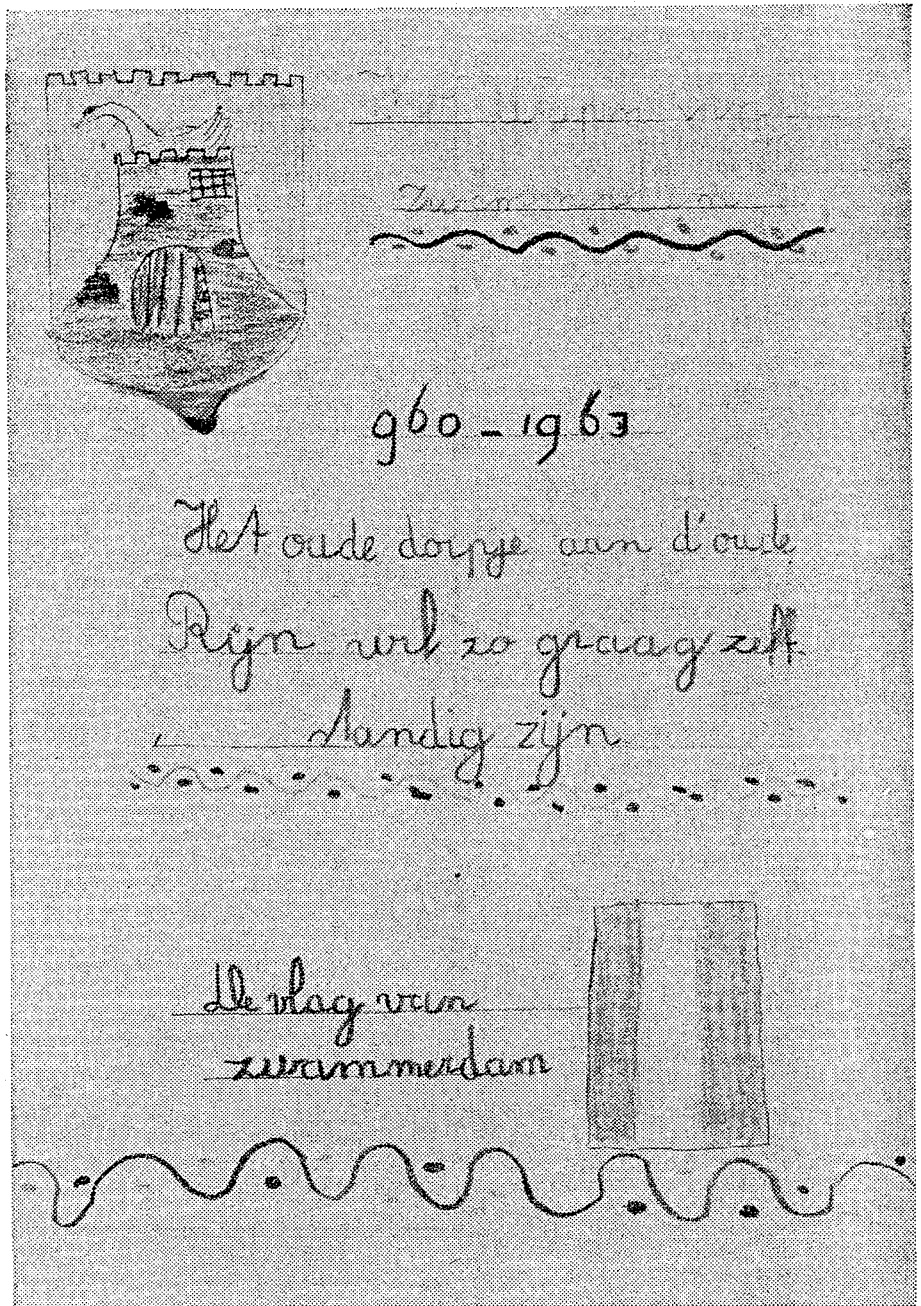 Zwammerdam
960 - 1963
Het oude dorpje aan d'oude
Rijn wil zo graag zelf
standig zijn
De vlag van
zwammerdam